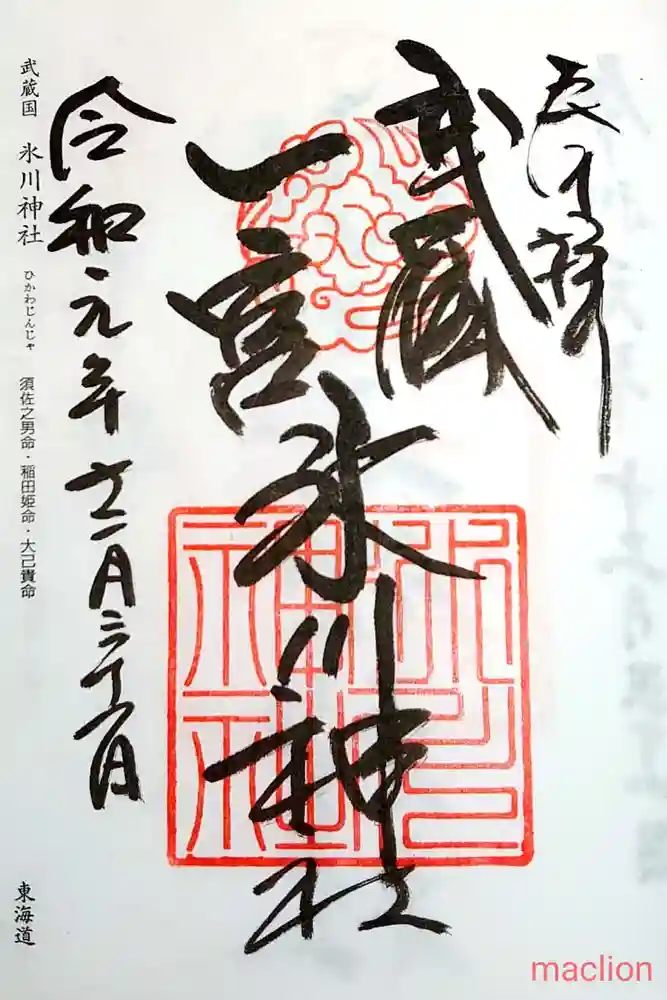 奉拝
武蔵
一宮
氷川神社
氷川
神社
令和元年
武蔵国 氷川神社 ひかわじんじゃ 須佐之男命・稲田姫命・大己貴命
東海道
maclion